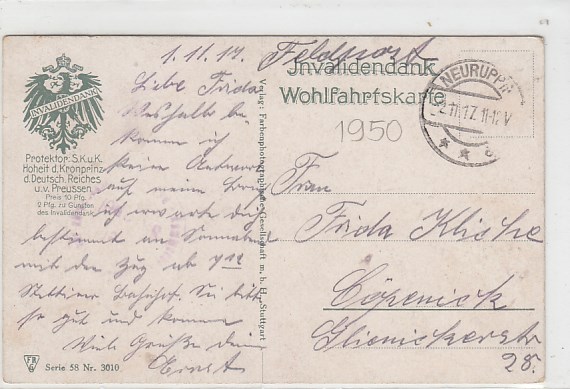 1.11.17. Feldpost
Invalidendank
Wohlfahrtskarte
1950
NEURUPPIN
2.11.17. 11-12 V
* * c
INVALIDENDANK
Protektor: S.K.u.K.
Hoheit d. Kronprinz
d. Deutsch. Reiches
u. v. Preussen
Preis 10 Pfg.
2 Pfg. zu Gunsten
des Invalidendank
Liebe Frida
Weshalb be-
komme ich
keine Antwort
auf meine
ich erwarte dich
bestimmt am Sonnabend
mit dem Zug ab
Stettiner Bahnhof. Sei bitte
so gut und komme
Viel Grüße dein
Ernst
Verlag: Farbenphotographische Gesellschaft m. b. H., Stuttgart
Frau
Frida Klische
Cöpenick
Glienickerstr
28.
FPG
Serie 58 Nr. 3010